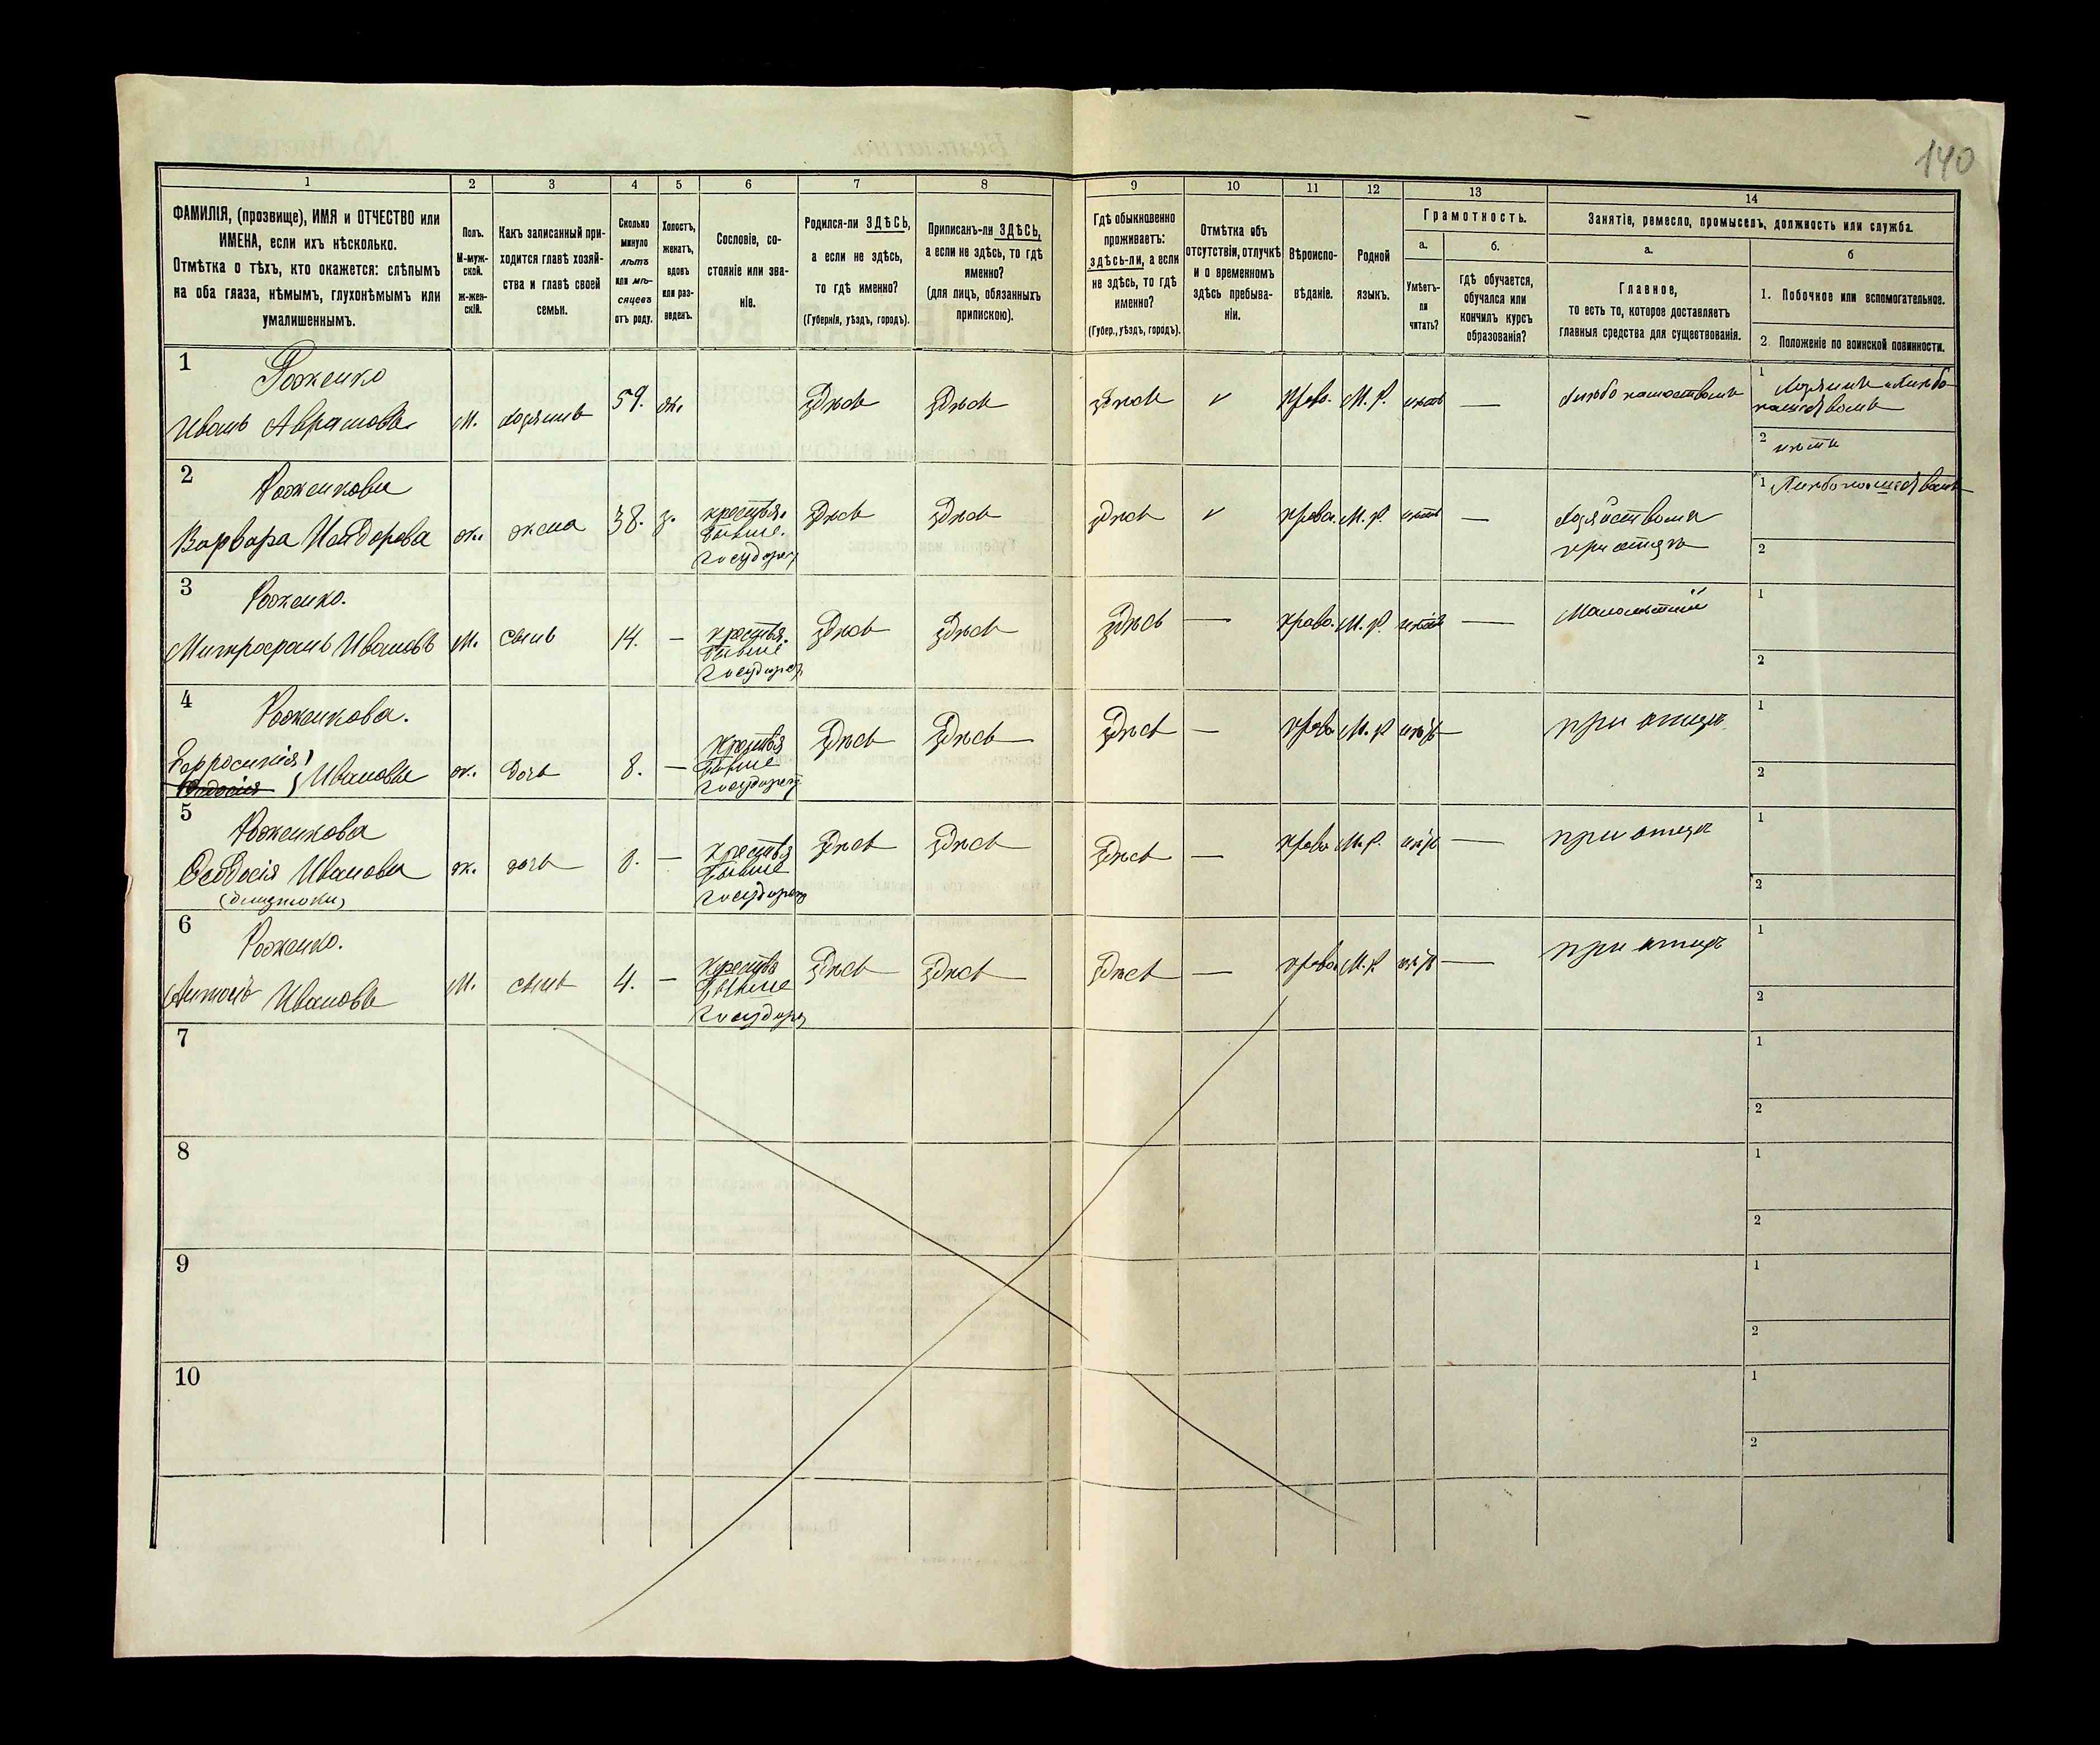 140
1
2
3
4
5
6
7
8
9
10
11
12
13
14
ФАМИЛІЯ, (прозвище), ИМЯ и ОТЧЕСТВО или
ИМЕНА, если ихъ нѣсколько.
Отмѣтка о тѣхъ, кто окажется: слѣпымъ
на оба глаза, нѣмымъ, глухонѣмымъ или
умалишеннымъ.
Полъ.
М-муж-
ской.
ж-жен-
скій.
Какъ записанный при-
ходится главѣ хозяй-
ства и главѣ своей
семьи.
Сколько
минуло
лѣтъ
или мѣ-
сяцевъ
отъ роду.
Холостъ,
женатъ,
вдовъ
или раз-
веденъ.
Сословіе, со-
стояніе или зва-
ніе.
Родился-ли ЗДѢСЬ,
а если не здѣсь,
то гдѣ именно?
(Губернія, уѣздъ, городъ).
Приписанъ-ли ЗДѢСЬ,
а если не здѣсь, то гдѣ
именно?
(для лицъ, обязанныхъ
припискою).
Гдѣ обыкновенно
проживаетъ:
здѣсь-ли, а если
не здѣсь, то гдѣ
именно?
(Губер., уѣздъ, городъ).
Отмѣтка объ
отсутствіи, отлучкѣ
и о временномъ
здѣсь пребыва-
ніи.
Вѣроиспо-
вѣданіе.
Родной
языкъ.
Грамотность.
а.
Умѣетъ-
ли
читать?
б.
гдѣ обучается,
обучался или
кончилъ курсъ
образованія?
Занятіе, ремесло, промыселъ, должность или служба.
а.
Главное,
то есть то, которое доставляетъ
главныя средства для существованія.
б
1. Побочное или вспомогательное.
2. Положеніе по воинской повинности.
1
Роженко
Иванъ Аврамовъ
М.
хозяинъ
59.
ж.
здѣсь
здѣсь
здѣсь
Право.
М. Р.
нѣтъ
—
1
2
2
Роженкова
Варвара Исидорова
ж.
жена
38.
з.
крестья.
бывше.
государ
здѣсь
здѣсь
здѣсь
Право.
М. Р.
нѣтъ
—
1
2
3
Роженко.
Митрофанъ Ивановъ
М.
сынъ
14.
—
крестья.
бывше
государ
здѣсь
здѣсь
здѣсь
—
Право.
М. Р.
нѣтъ
—
Малолѣтній
1
2
4
Роженкова.
Ефросинія
Ѳеодосія Иванова
ж.
дочь
8.
—
крестья
бывше
государ
здѣсь
здѣсь
здѣсь
—
Право
М. Р
нѣтъ
при отцѣ
1
2
5
Роженкова
Ѳеодосія Иванова
(близнюки)
ж.
дочь
8.
—
крестья
бывше
государ
здѣсь
здѣсь
здѣсь
—
Право
М. Р.
нѣтъ
—
при отцѣ
1
2
6
Роженко.
Антонъ Ивановъ
М.
сынъ
4.
—
крестья
бывше
государ
здѣсь
здѣсь
здѣсь
—
Право
М. Р
нѣтъ
—
при отцѣ
1
2
7
1
2
8
1
2
9
1
2
10
1
2